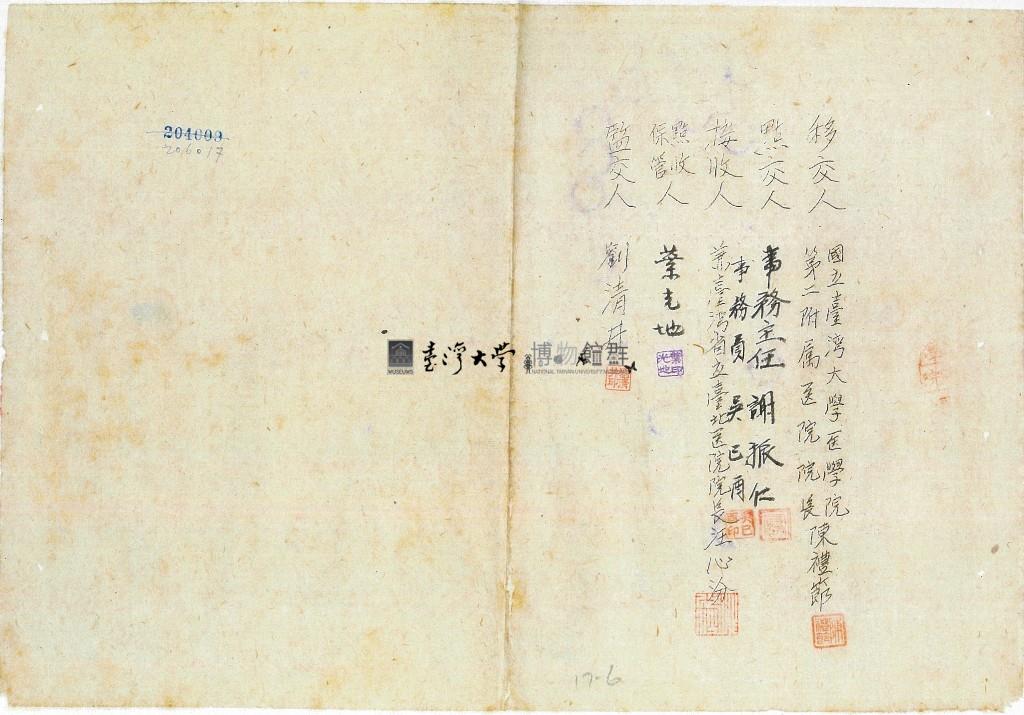 移交人 國立臺湾大學医學院
第二附属医院院長陳禮節
點交人 事務主任 謝振仁
事務員 吳已酉
接收人 兼臺湾省立臺北医院院長汪心汾
點收
保管人 葉克地
監交人 劉清井
204009
206017
17-6
MUSEUMS
臺灣大學
博物館群
NATIONAL TAIWAN UNIVERSITY MUSEUMS